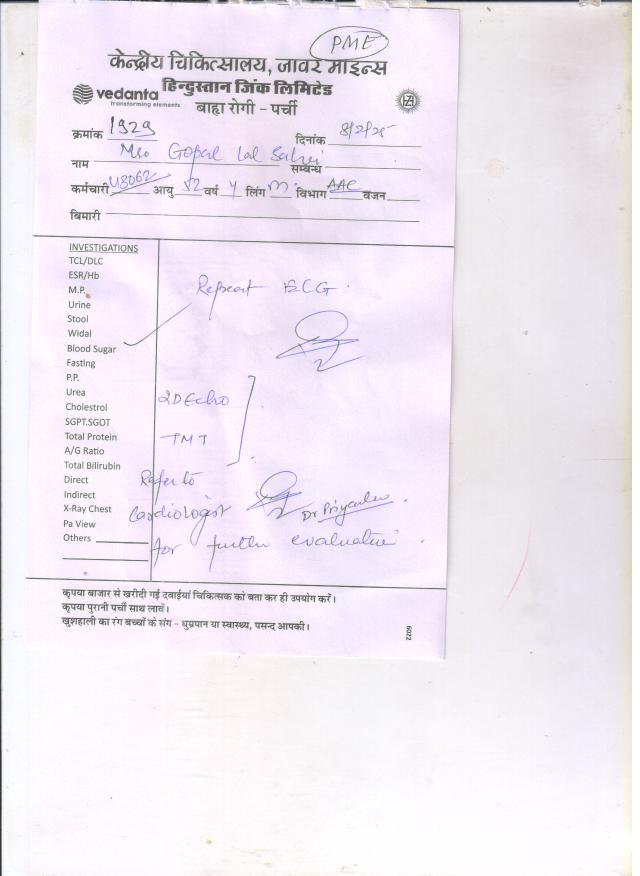 PME
केन्द्रीय चिकित्सालय, जावर माइन्स
vedanta हिन्दुस्तान जिंक लिमिटेड
transforming elements
बाह्य रोगी - पर्ची
क्रमांक 1929 दिनांक 8/2/25
नाम Gopal Lal सम्बन्ध
कर्मचारी आयु 52 वर्ष Y लिंग M विभाग AAC वजन
बिमारी
INVESTIGATIONS
TCL/DLC
ESR/Hb
M.P. Repeat ECG.
Urine
Stool
Widal
Blood Sugar
Fasting
P.P.
Urea
2D Echo
Cholestrol
SGPT.SGOT
Total Protein TMT
A/G Ratio
Total Bilirubin
Direct Refer to
Indirect
X-Ray Chest Cardiologist Dr Priyanka
Pa View
Others for further evaluation.
कृपया बाजार से खरीदी गई दवाईयां चिकित्सक को बता कर ही उपयोग करें।
कृपया पुरानी पर्ची साथ लायें।
खुशहाली का रंग बच्चों के संग - धुम्रपान या स्वास्थ्य, पसन्द आपकी।
6022